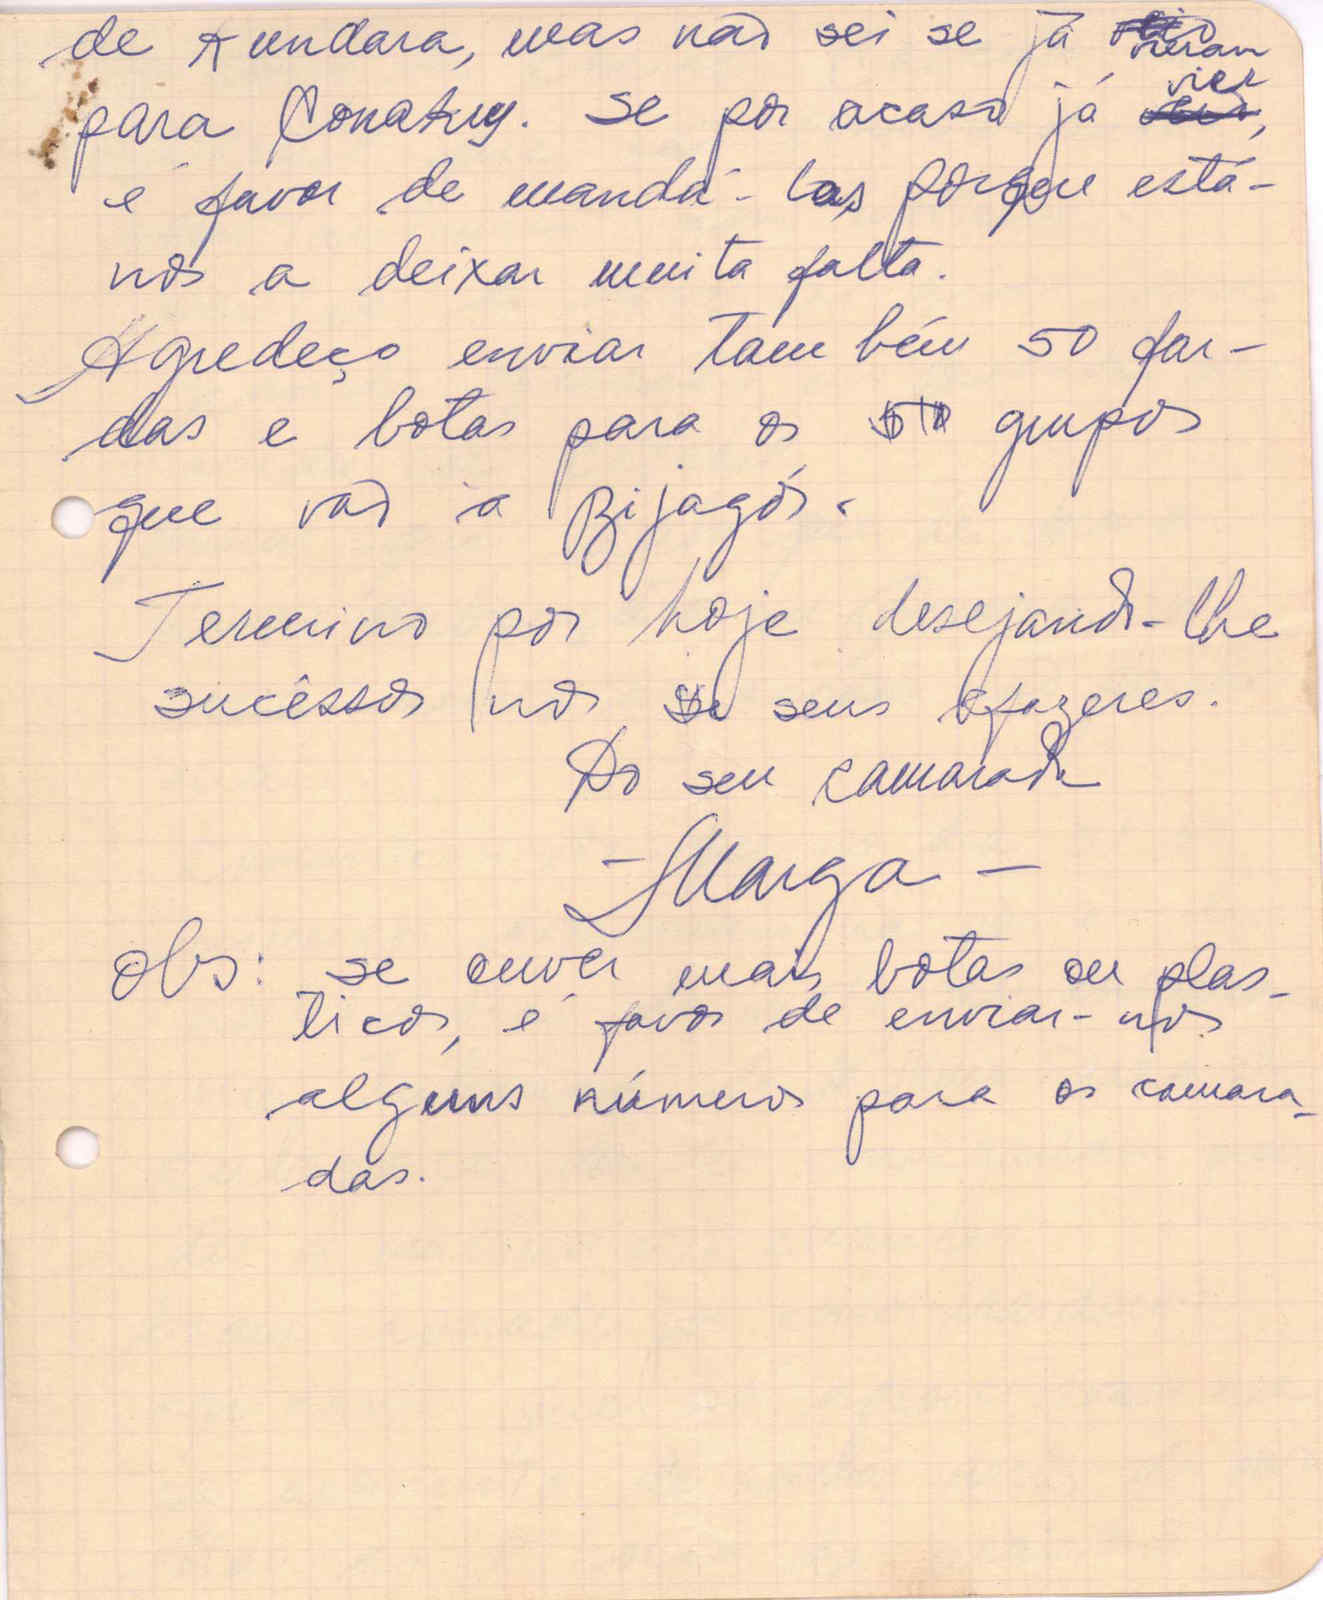 de Kundara, mas não sei se já vieram
para Conakry. Se por acaso já vier,
é favor de mandá-las porque está-
nos a deixar muita falta.
Agredeço enviar também 50 far-
das e botas para os grupos
que vão à Bijagós.
Termino por hoje desejando-lhe
sucêssos nos seus afazeres.
Do seu camarada
- Marga -
Obs: se ouver mais botas ou plas-
ticos, é favor de enviar-nos
alguns números para os camara-
das.